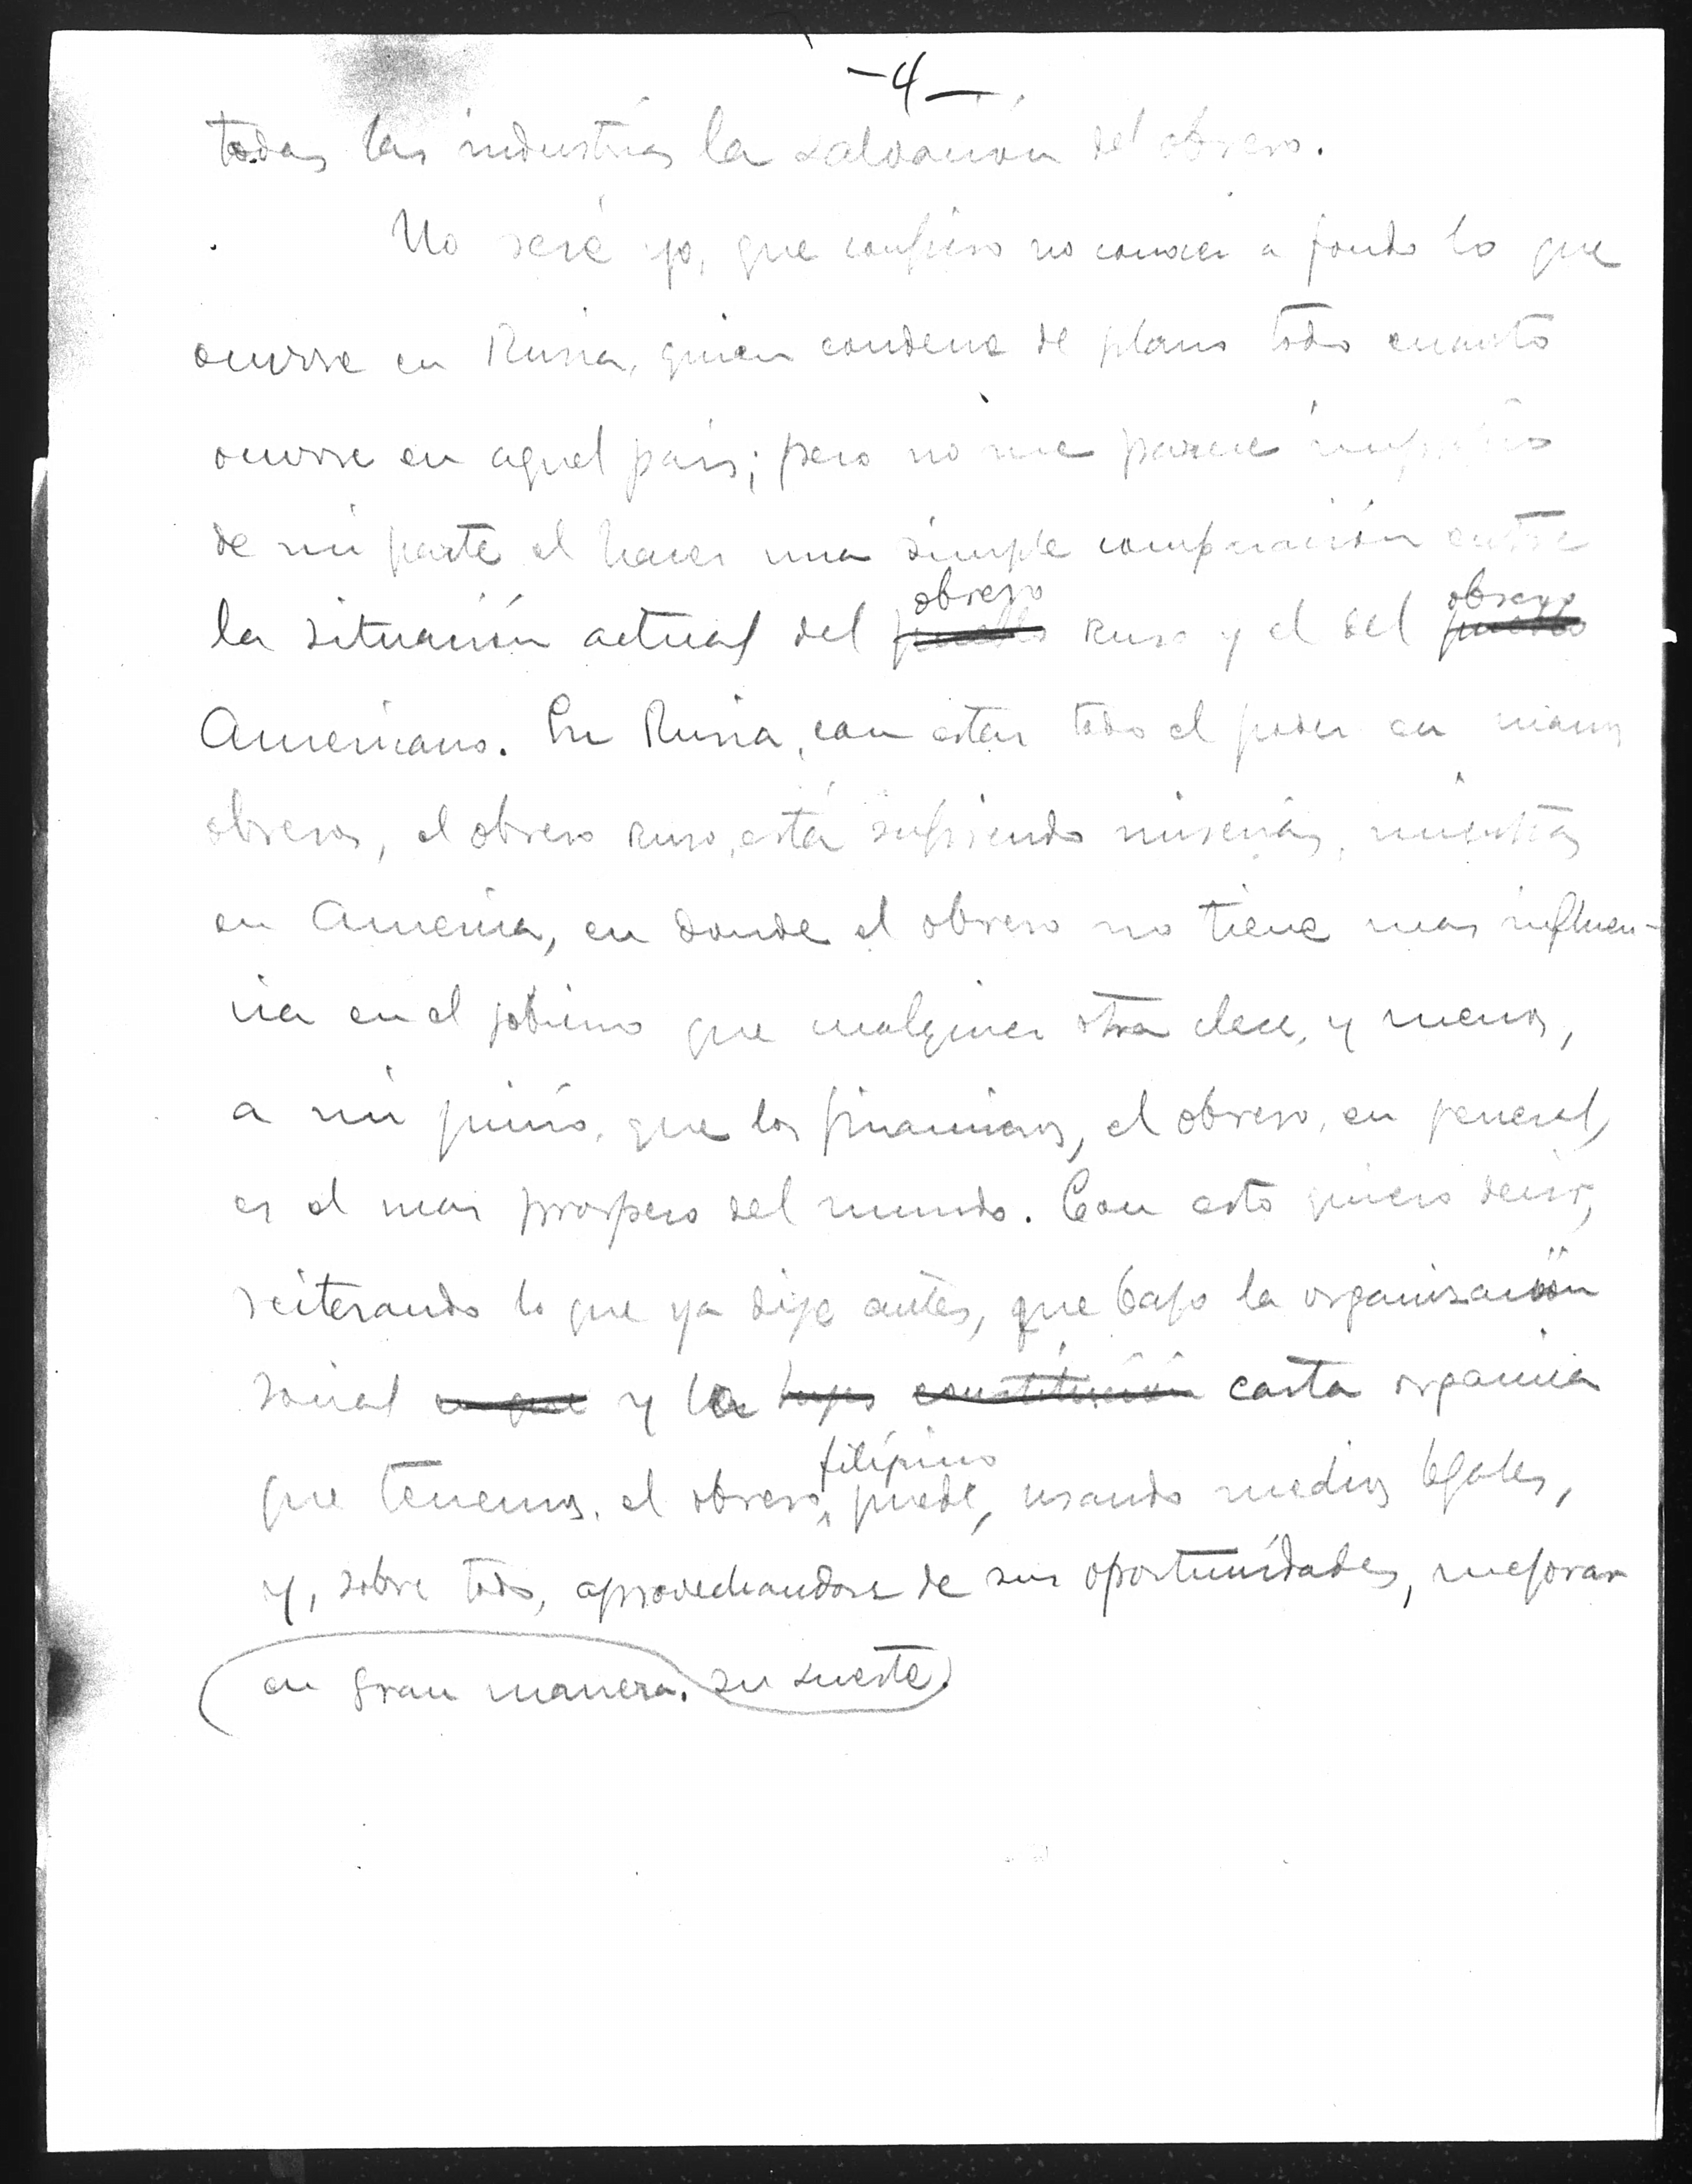 -4-
todas las industrias la salvación del obrero.
No seré yo, que confieso no conocer a fondo lo que
ocurre en Rusia, quien condene de plano todo cuanto
ocurre en aquel país; pero no me parece impropio
de mi parte el hacer una simple comparación entre
obrero obrero
la situación actual del pueblo ruso y el del pueblo
Americano. En Rusia, con estar todo el poder en manos
obreras, el obrero ruso, está sufriendo miserias, mientras
en America, en donde el obrero no tiene mas influen-
cia en el gobierno que cualquier otra clase, y menos,
a mi juicio, que los financieros, el obrero, en general,
es el mas prospero del mundo. Con esto quiero decir,
reiterando lo que ya dije antes, que bajo la organización
social en que y la leyes constitución carta organica
filipino
que tenemos, el obrero puede, usando medios legales,
y, sobre todo, aprovechandose de sus oportunidades, mejorar
en gran manera. su suerte.